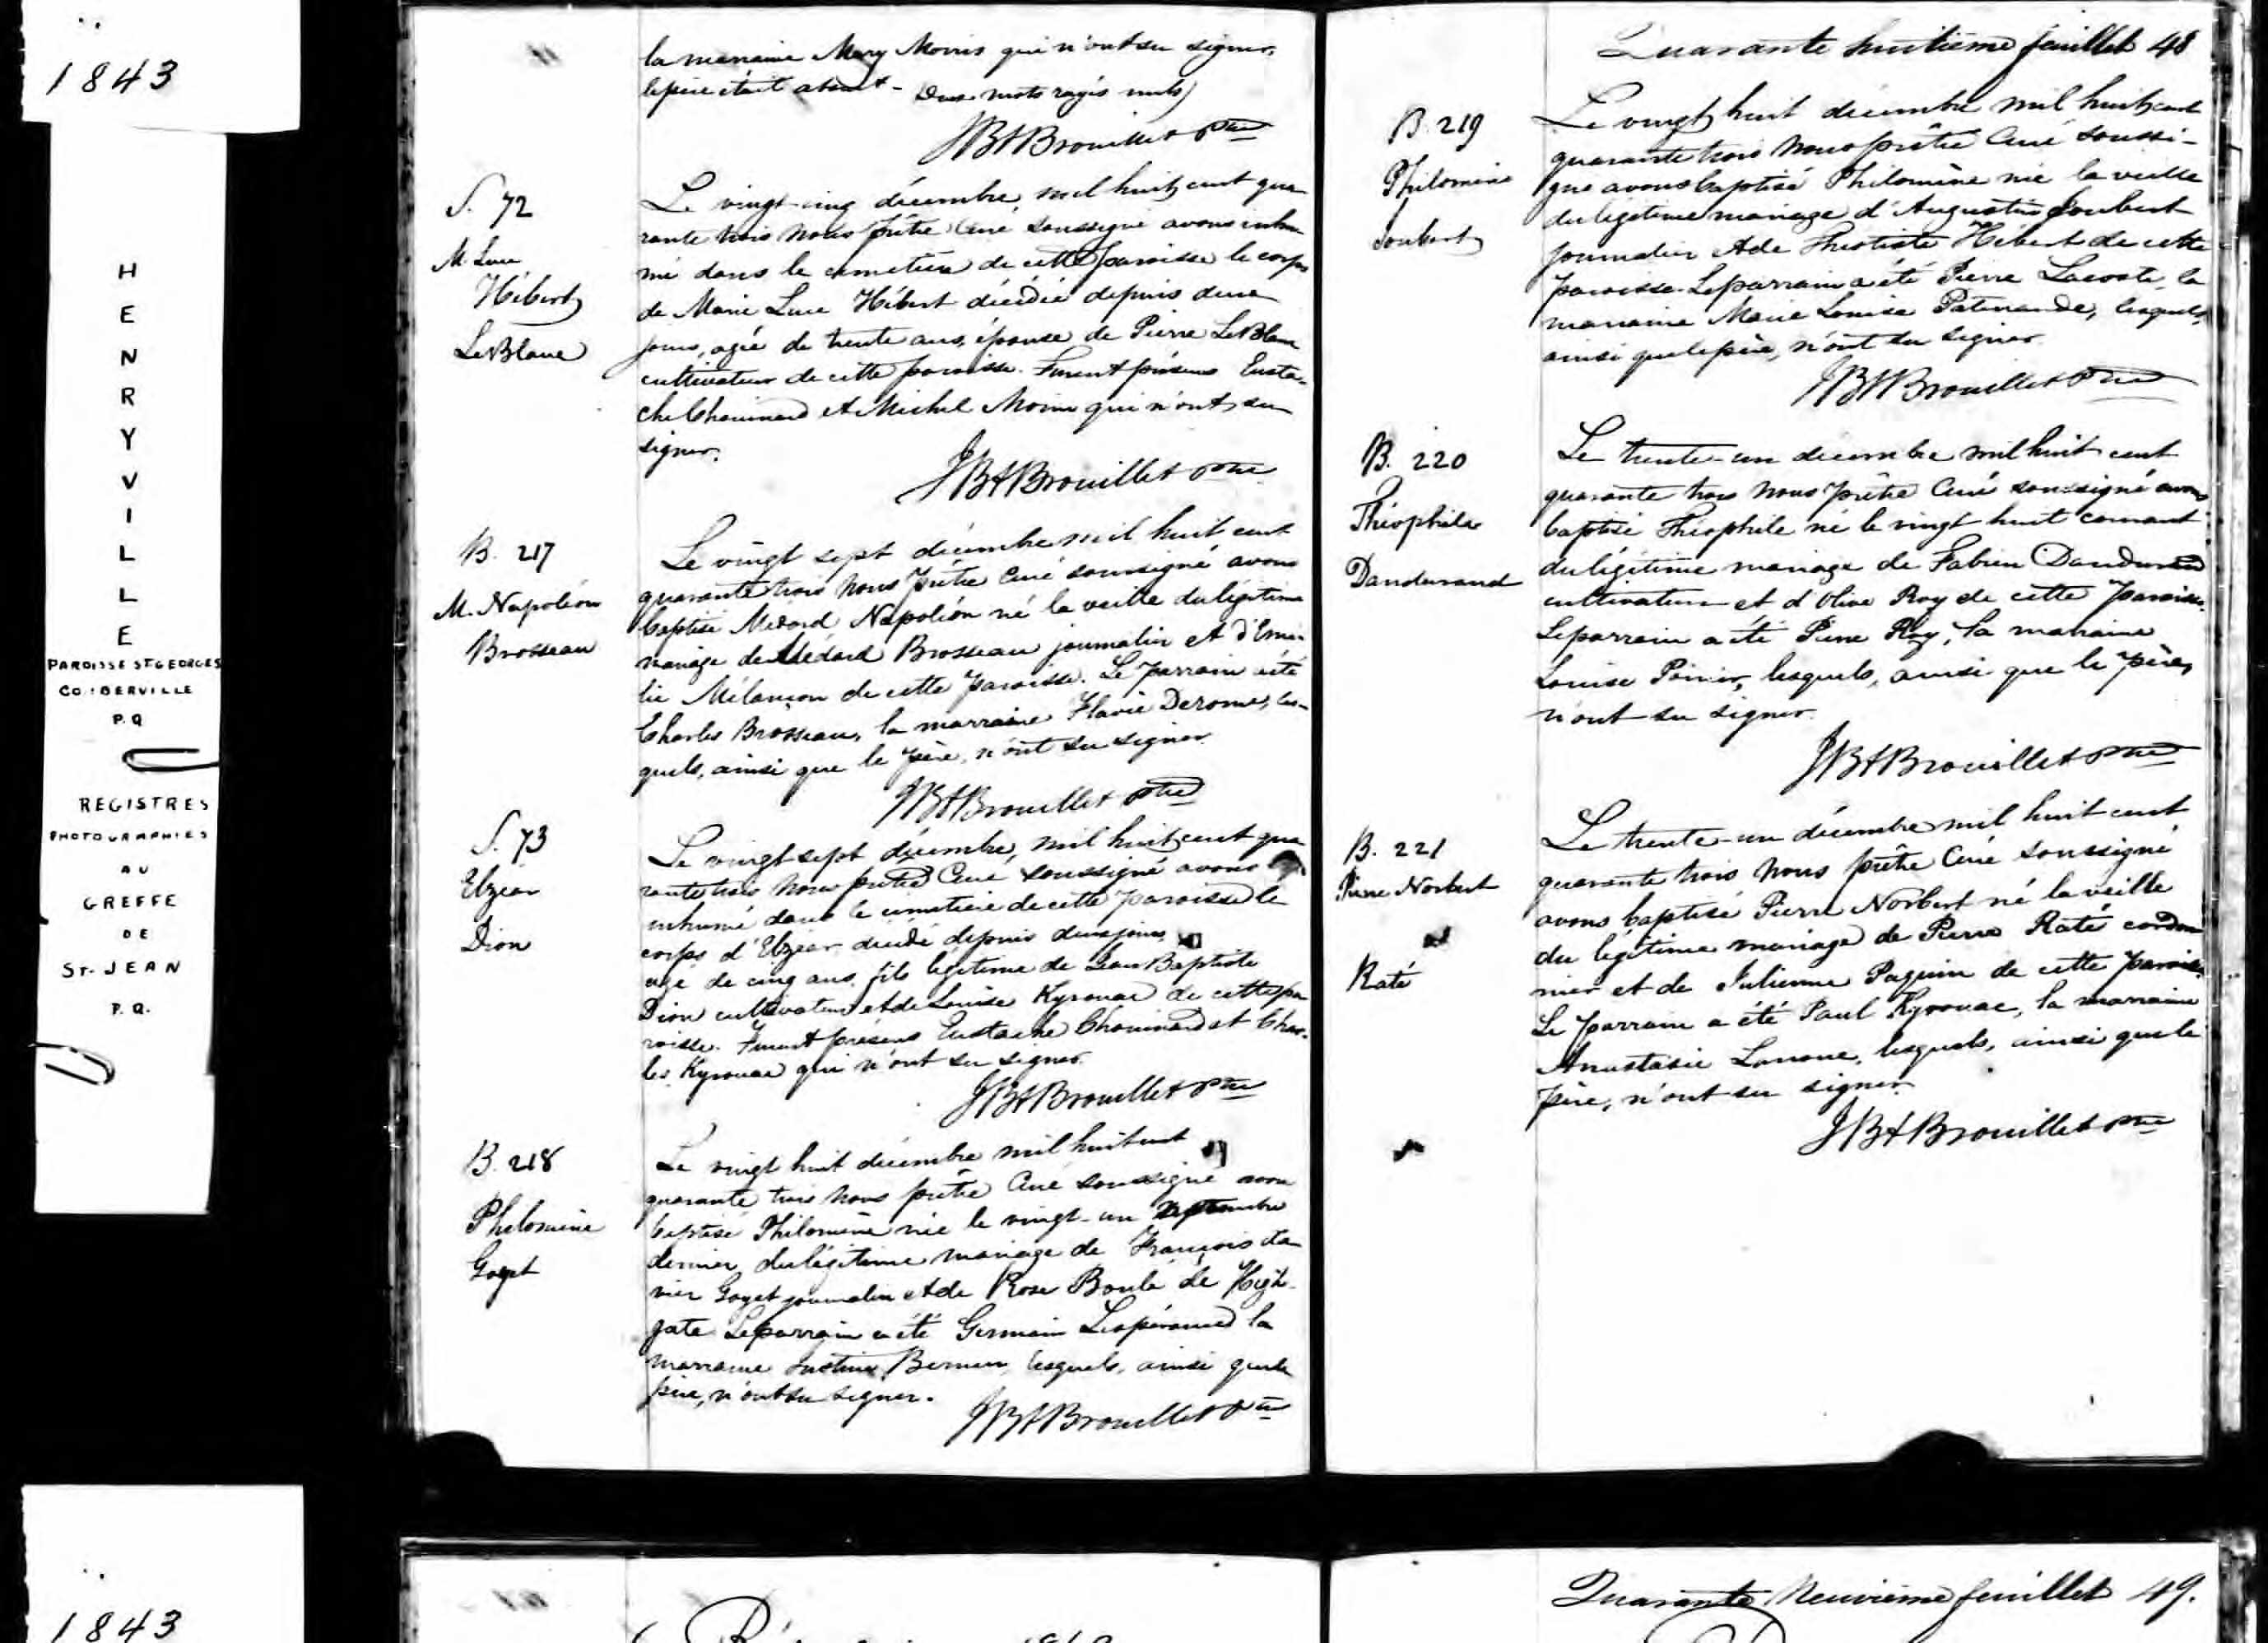 1843
HENRYVILLE
PAROISSE ST GEORGES
CO: IBERVILLE
P.Q
REGISTRES
PHOTOGRAPHIES
AU
GREFFE
DE
ST-JEAN
P.Q.
la marraine Mary Morris qui n'ont su signer,
le père était absent - Deux mots rayés nuls
JBABrouillet Ptre
S. 72
M. Luce
Hébert
LeBlanc
Le vingt-cinq décembre, mil huit cent qua
rante trois Nous prêtre Curé soussigné avons inhu
mé dans le cimetière de cette paroisse le corps
de Marie Luce Hébert décédée depuis deux
jours, agée de trente ans, épouse de Pierre LeBlanc
cultivateur de cette paroisse. Furent présens Eusta-
che Chouinard et Michel Morin qui n'ont su
signer.
JBABrouillet Ptre
B. 217
M. Napoléon
Brosseau
Le vingt sept décembre mil huit cent
quarante trois Nous prêtre Curé soussigné avons
baptisé Médard Napoléon né la veille du légitime
mariage de Médard Brosseau journalier et d'Emi-
lie Mélançon de cette paroisse. Le parrain a été
Charles Brosseau, la marraine Flavie Derome, les-
quels, ainsi que le père, n'ont su signer.
JBABrouillet Ptre
S. 73
Elzéar
Dion
Le vingt sept décembre, mil huit cent qua
rante trois Nous prêtre Curé soussigné avons
inhumé dans le cimetière de cette paroisse le
corps d'Elzéar décédé depuis deux jours
agé de cinq ans, fils légitime de Jean Baptiste
Dion cultivateur et de Louise Kyrouac de cette pa
roisse. Furent présens Eustache Chouinard et Char-
les Kyrouac qui n'ont su signer.
JBABrouillet Ptre
B. 218
Philomène
Goyet
Le vingt huit décembre mil huit cent
quarante trois Nous prêtre Curé soussigné avons
baptisé Philomène née le vingt-un septembre
dernier du légitime mariage de François Xa
vier Goyet journalier et de Rose Boulé de High-
gate Le parrain a été Germain Lespérance la
marraine Justine lesquels, ainsi que le
père, n'ont su signer.
JBABrouillet Ptre
Quarante huitième feuillet 48
B. 219
Philomène
Joubert
Le vingt huit décembre mil huit cent
quarante trois Nous prêtre Curé soussi-
gné avons baptisé Philomène née la veille
du légitime mariage d'Augustin Joubert
journalier et de Théotiste Hébert de cette
paroisse. Le parrain a été Pierre Lacoste, la
marraine Marie Louise Patenaude, lesquels,
ainsi que le père, n'ont su signer.
JBABrouillet Ptre
B. 220
Théophile
Dandurand
Le trente-un décembre mil huit cent
quarante trois Nous prêtre Curé soussigné avons
baptisé Théophile né le vingt huit courant
du légitime mariage de Fabien Dandurand
cultivateur et d'Olive Roy de cette paroisse.
Le parrain a été Pierre Roy, la marraine
Louise Poirier, lesquels, ainsi que le père,
n'ont su signer.
JBABrouillet Ptre
B. 221
Pierre Norbert
Raté
Le trente-un décembre mil huit cent
quarante trois Nous prêtre Curé soussigné
avons baptisé Pierre Norbert né la veille
du légitime mariage de Pierre Raté cordon
nier et de Julienne Paquin de cette paroisse.
Le parrain a été Paul Kyrouac, la marraine
Anastasie Lanoue, lesquels, ainsi que le
père, n'ont su signer.
JBABrouillet Ptre
1843
Quarante Neuvième feuillet 49.